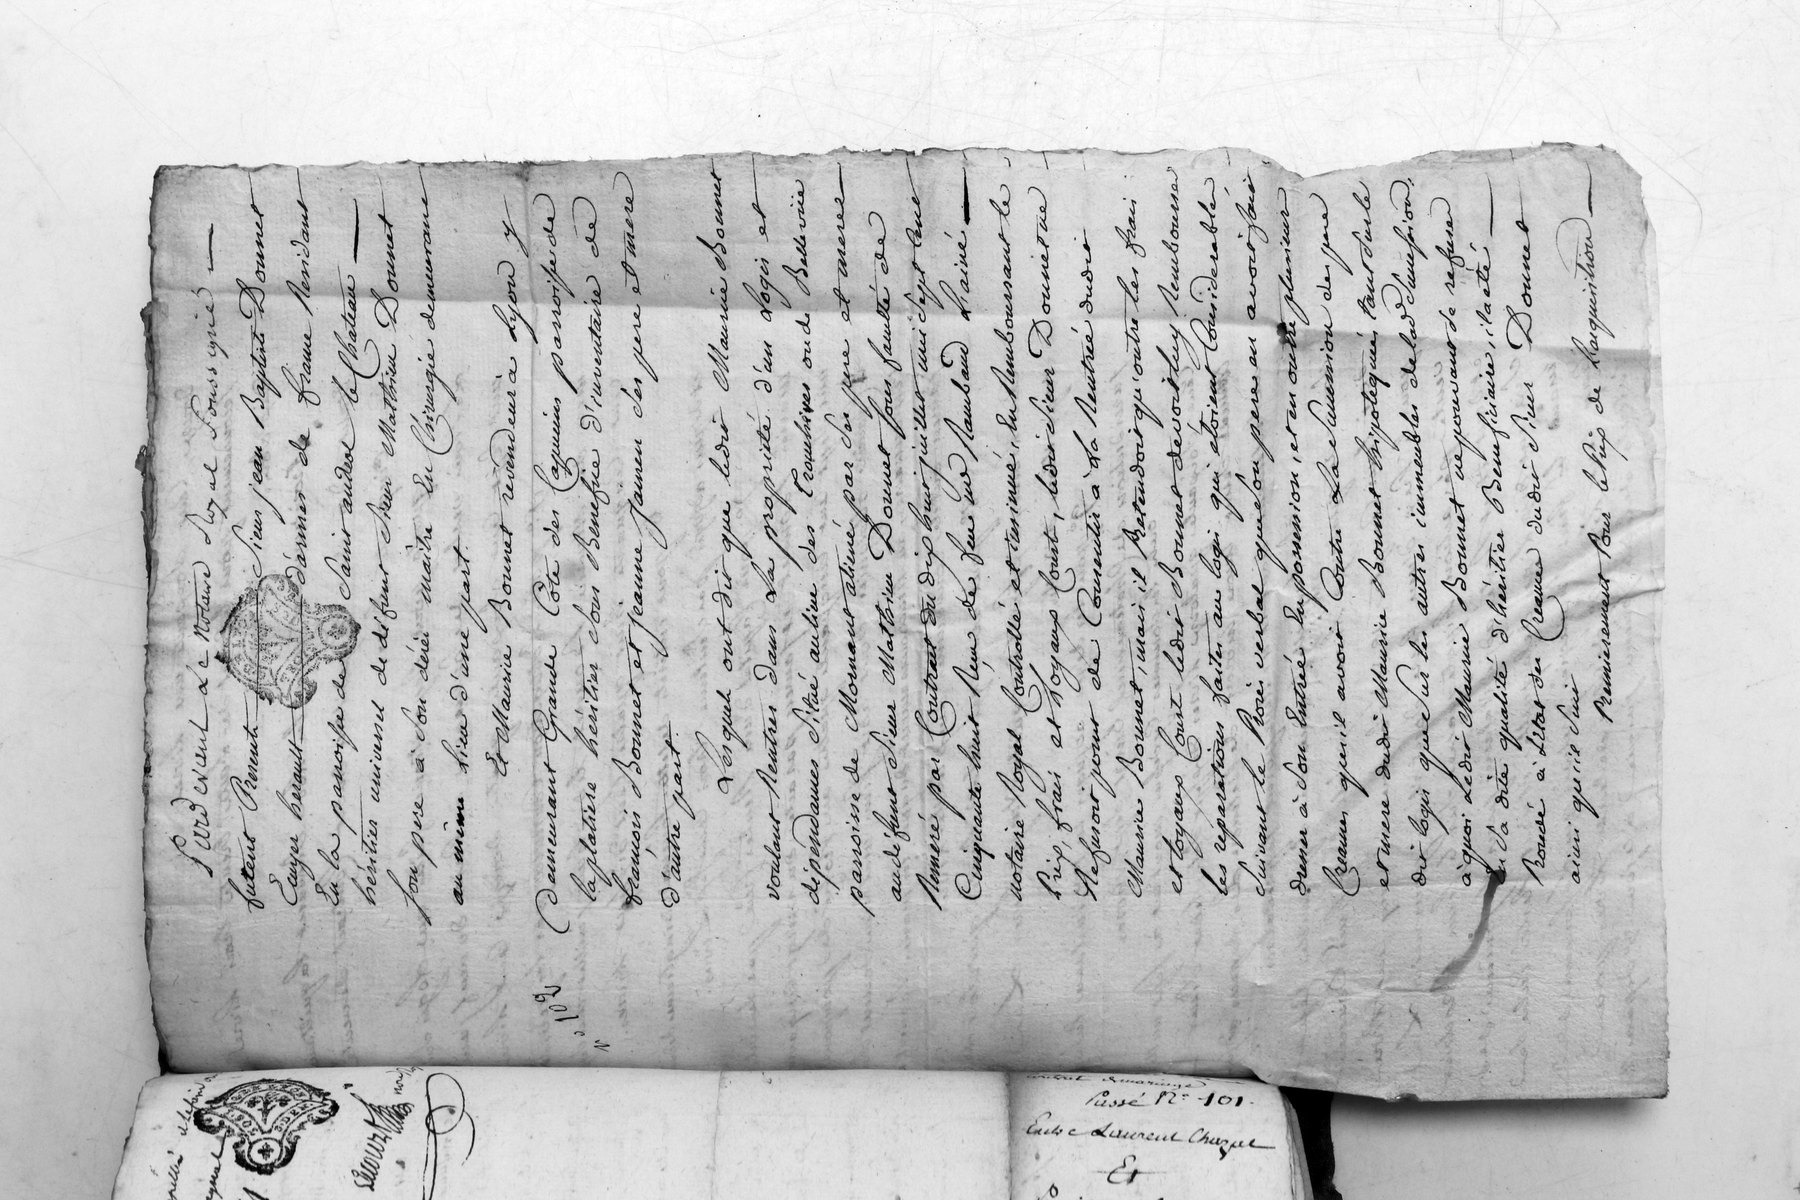 Pardevant Le Notaire Royal Soussigné —
furent Presents Sieur jean Baptiste Donnet
Ecuyer herault d'armes de france Residant
En la paroisse de Saint andeol le Chateau —
héritier universel de défunt Sieur Mathieu Donnet
son pere à son décéi maitre En Chirurgie demeurant
au même lieu d'une part.
Et Maurice Bonnet révendeur à Lyon y
demeurant Grande Côte des Capucins parroisse de
laplatiere héritier sous Benefice d'inventaire de
francois Bonnet et jeanne janien ses pere et mere
d'autre part.
Lesquels ont dit que ledit Maurice Bonnet
voulant Rentrer dans La proprieté d'un Logis et
dépendances Situé au lieu des trouhives ou de Bellevüe
parroisse de Mornant aliené par ses pere et mere
au défunt Sieur Mathieu Donnet sous faculté de
Réméré par Contrat du dix huit juillet mil sept cent
Cinquante huit Réçu de feu me Raubaud L'ainé —
notaire Royal Controllé et insinué, En Remboursant le
Prix, frais et Loyaux Cout, ledit Sieur Donnet ne
Refusoit point de Consentir à La Rentrée dudit
Maurice Bonnet, mais il Pretendoit qu'outre les frais
et Loyaux Cout ledit Bonnet devoit luy Rembourser
les réparations faites au logis qui étoient Considerables
suivant le Procès verbal que Son pere en avoit fait
dresser à Son Entrée En possession, et en outre plusieurs
Creances qu'il avoit Contre La Succession des pere
et mere dudit Maurice Bonnet hipotequées tant sur le
dit logis que Sur les autres immeubles de lad Succession,
à quoi Ledit Maurice Bonnet ne pouvant se refuser
en Sa dite qualité d'héritier Beneficiaire, il a été —
Procedé à L'état des Creances dudit Sieur Donnet
ainsi qu'il Suit
Premierement Pour le Prix de L'aquisition —
N° 102
contrat de mariage
Passé N° 101.
Entre Laurent Chazal
Et